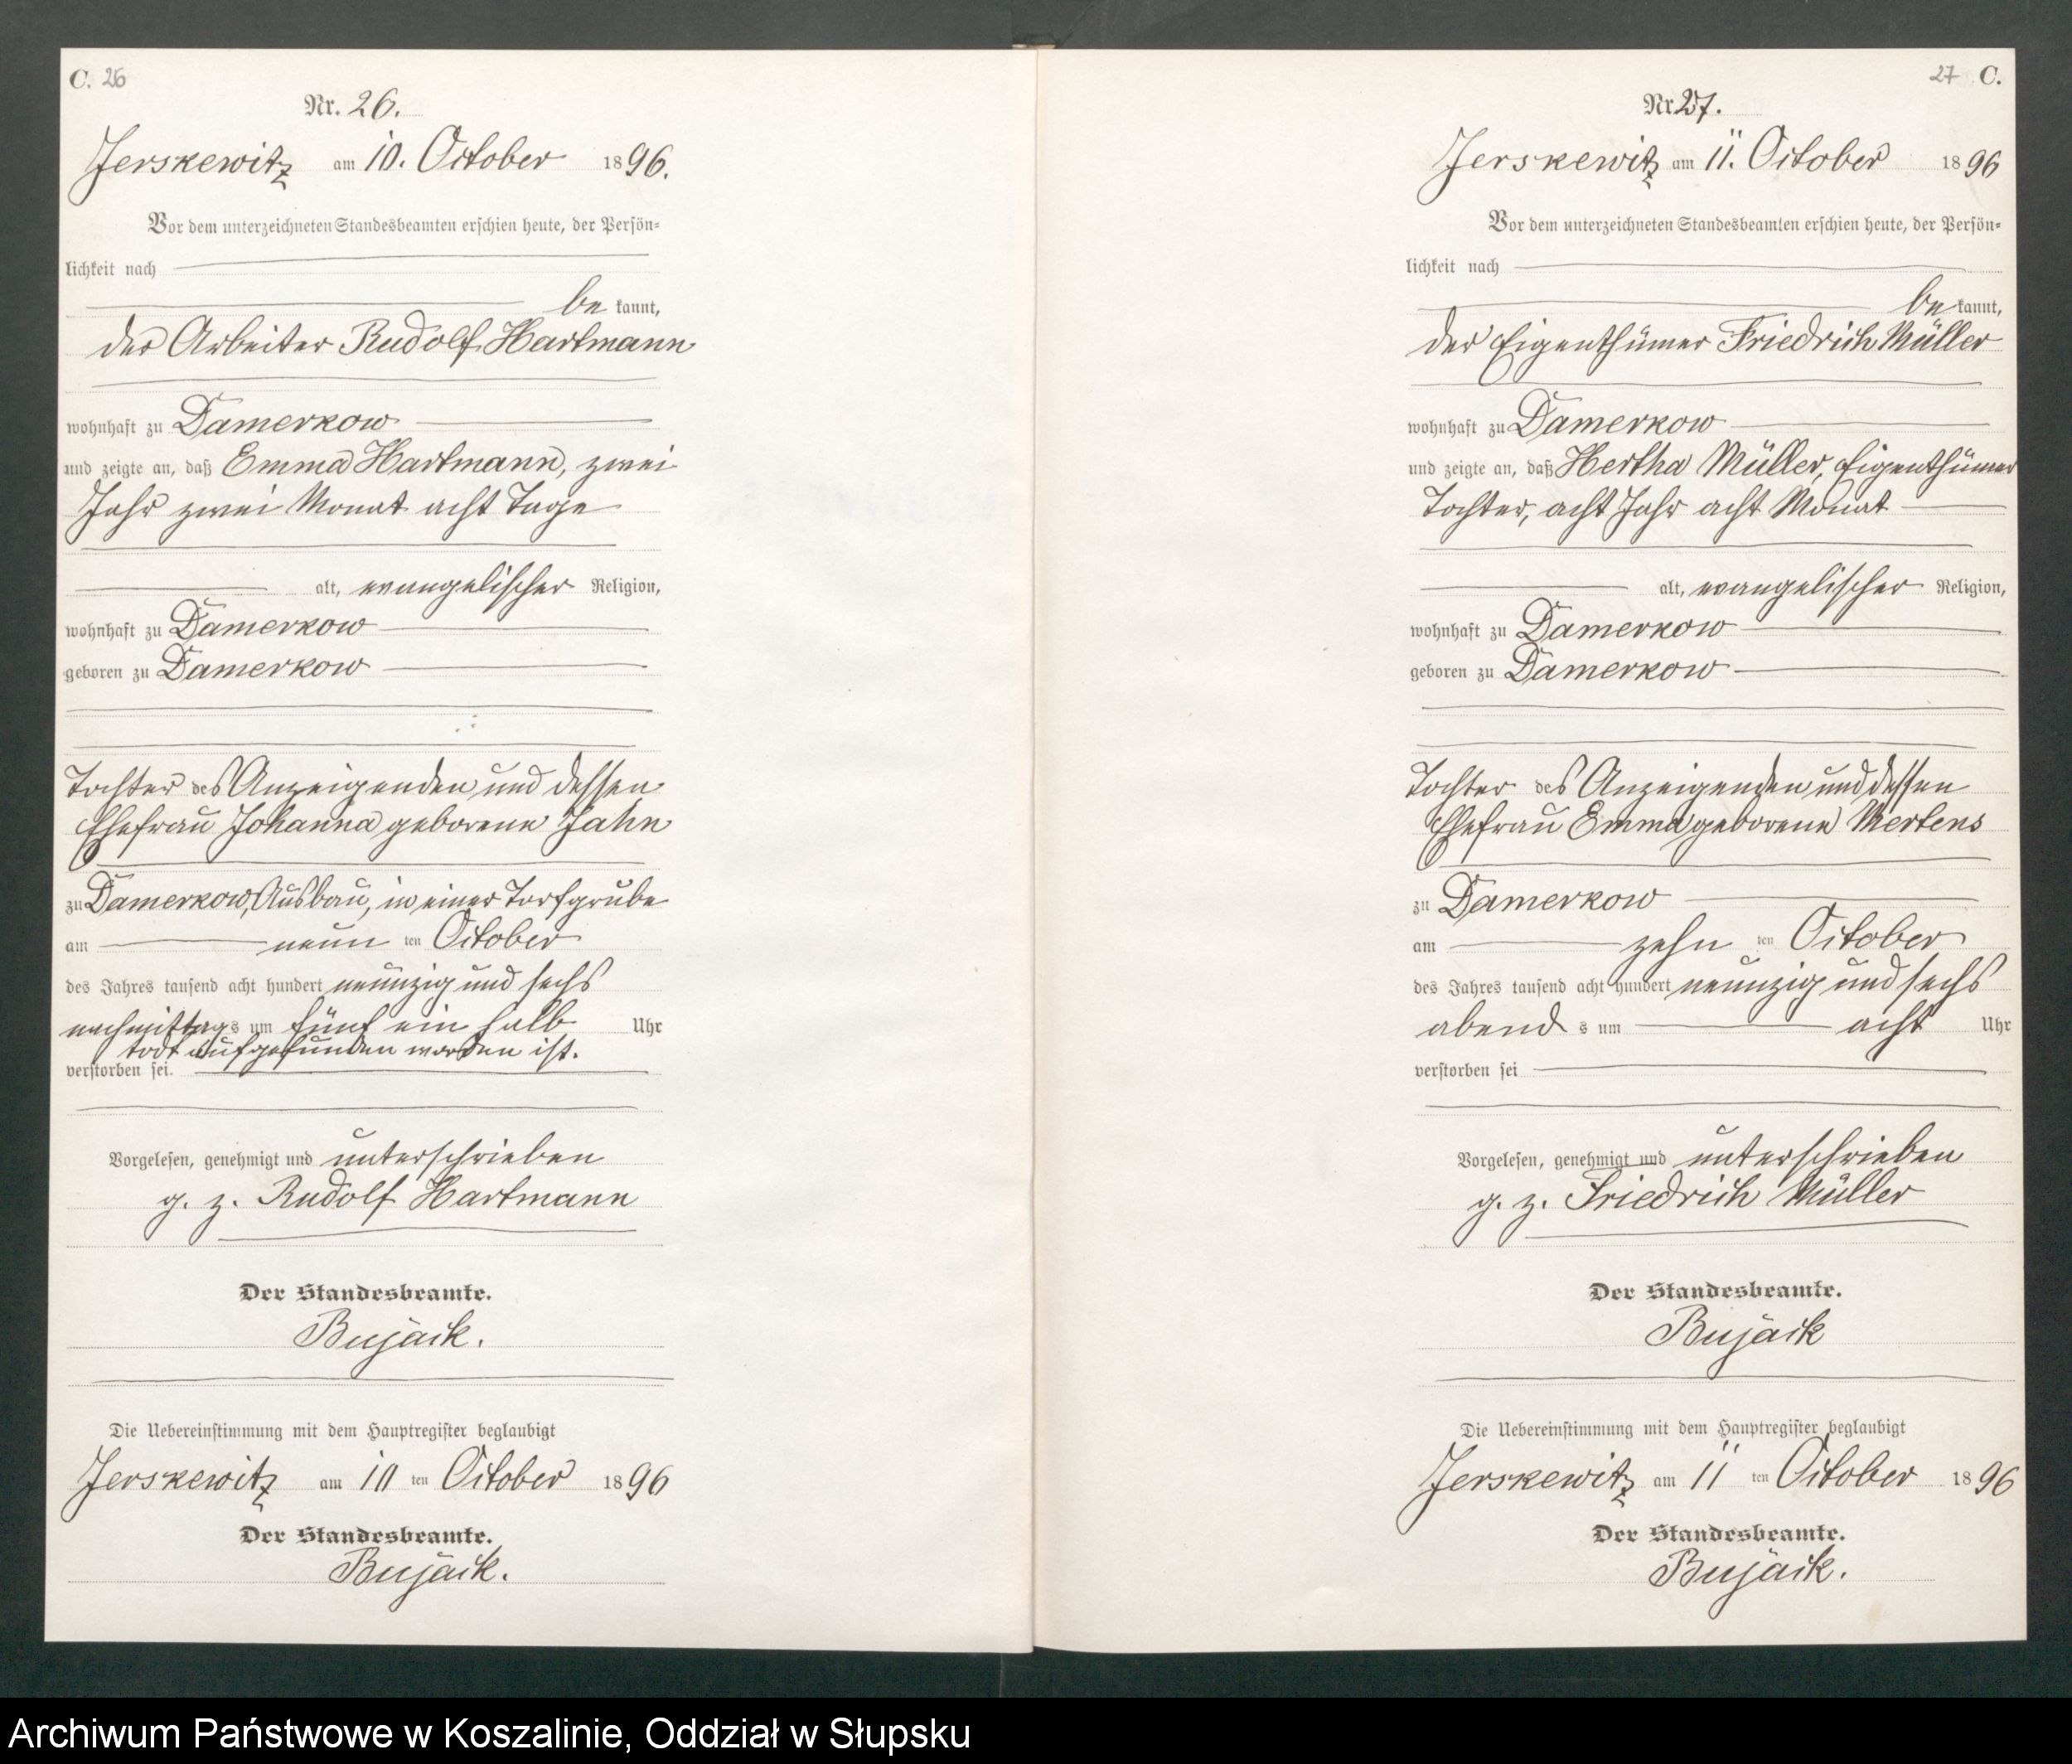 C. 26
Nr. 26.
Jerskewitz am 10. October 1896.
Vor dem unterzeichneten Standesbeamten erschien heute, der Persön-
lichkeit nach
be kannt,
der Arbeiter Rudolf Hartmann
wohnhaft zu Damerkow
und zeigte an, daß Emma Hartmann, zwei
Jahr zwei Monat acht Tage
alt, evangelischer Religion,
wohnhaft zu Damerkow
geboren zu Damerkow
Tochter des Anzeigenden und dessen
Ehefrau Johanna geborene Jahn
zu Damerkow, Ausbau, in einer Torfgrube
am neun ten October
des Jahres tausend acht hundert neunzig und sechs
nachmittag s um fünf ein halb Uhr
todt aufgefunden worden ist.
verstorben sei.
Vorgelesen, genehmigt und unterschrieben
g. z. Rudolf Hartmann
Der Standesbeamte.
Bujack.
Die Uebereinstimmung mit dem Hauptregister beglaubigt
Jerskewitz am 10 ten October 1896
Der Standesbeamte.
Bujack.
27 C.
Nr. 27.
Jerskewitz am 11. October 1896
Vor dem unterzeichneten Standesbeamten erschien heute, der Persön-
lichkeit nach
be kannt,
der Eigenthümer Friedrich Müller
wohnhaft zu Damerkow
und zeigte an, daß Hertha Müller, Eigenthümer
Tochter, acht Jahr acht Monat
alt, evangelischer Religion,
wohnhaft zu Damerkow
geboren zu Damerkow
Tochter des Anzeigenden und dessen
Ehefrau Emma geborene Mertens
zu Damerkow
am zehn ten October
des Jahres tausend acht hundert neunzig und sechs
abend s um acht Uhr
verstorben sei
Vorgelesen, genehmigt und unterschrieben
g. z. Friedrich Müller
Der Standesbeamte.
Bujack
Die Uebereinstimmung mit dem Hauptregister beglaubigt
Jerskewitz am 11 ten October 1896
Der Standesbeamte.
Bujack.
Archiwum Państwowe w Koszalinie, Oddział w Słupsku